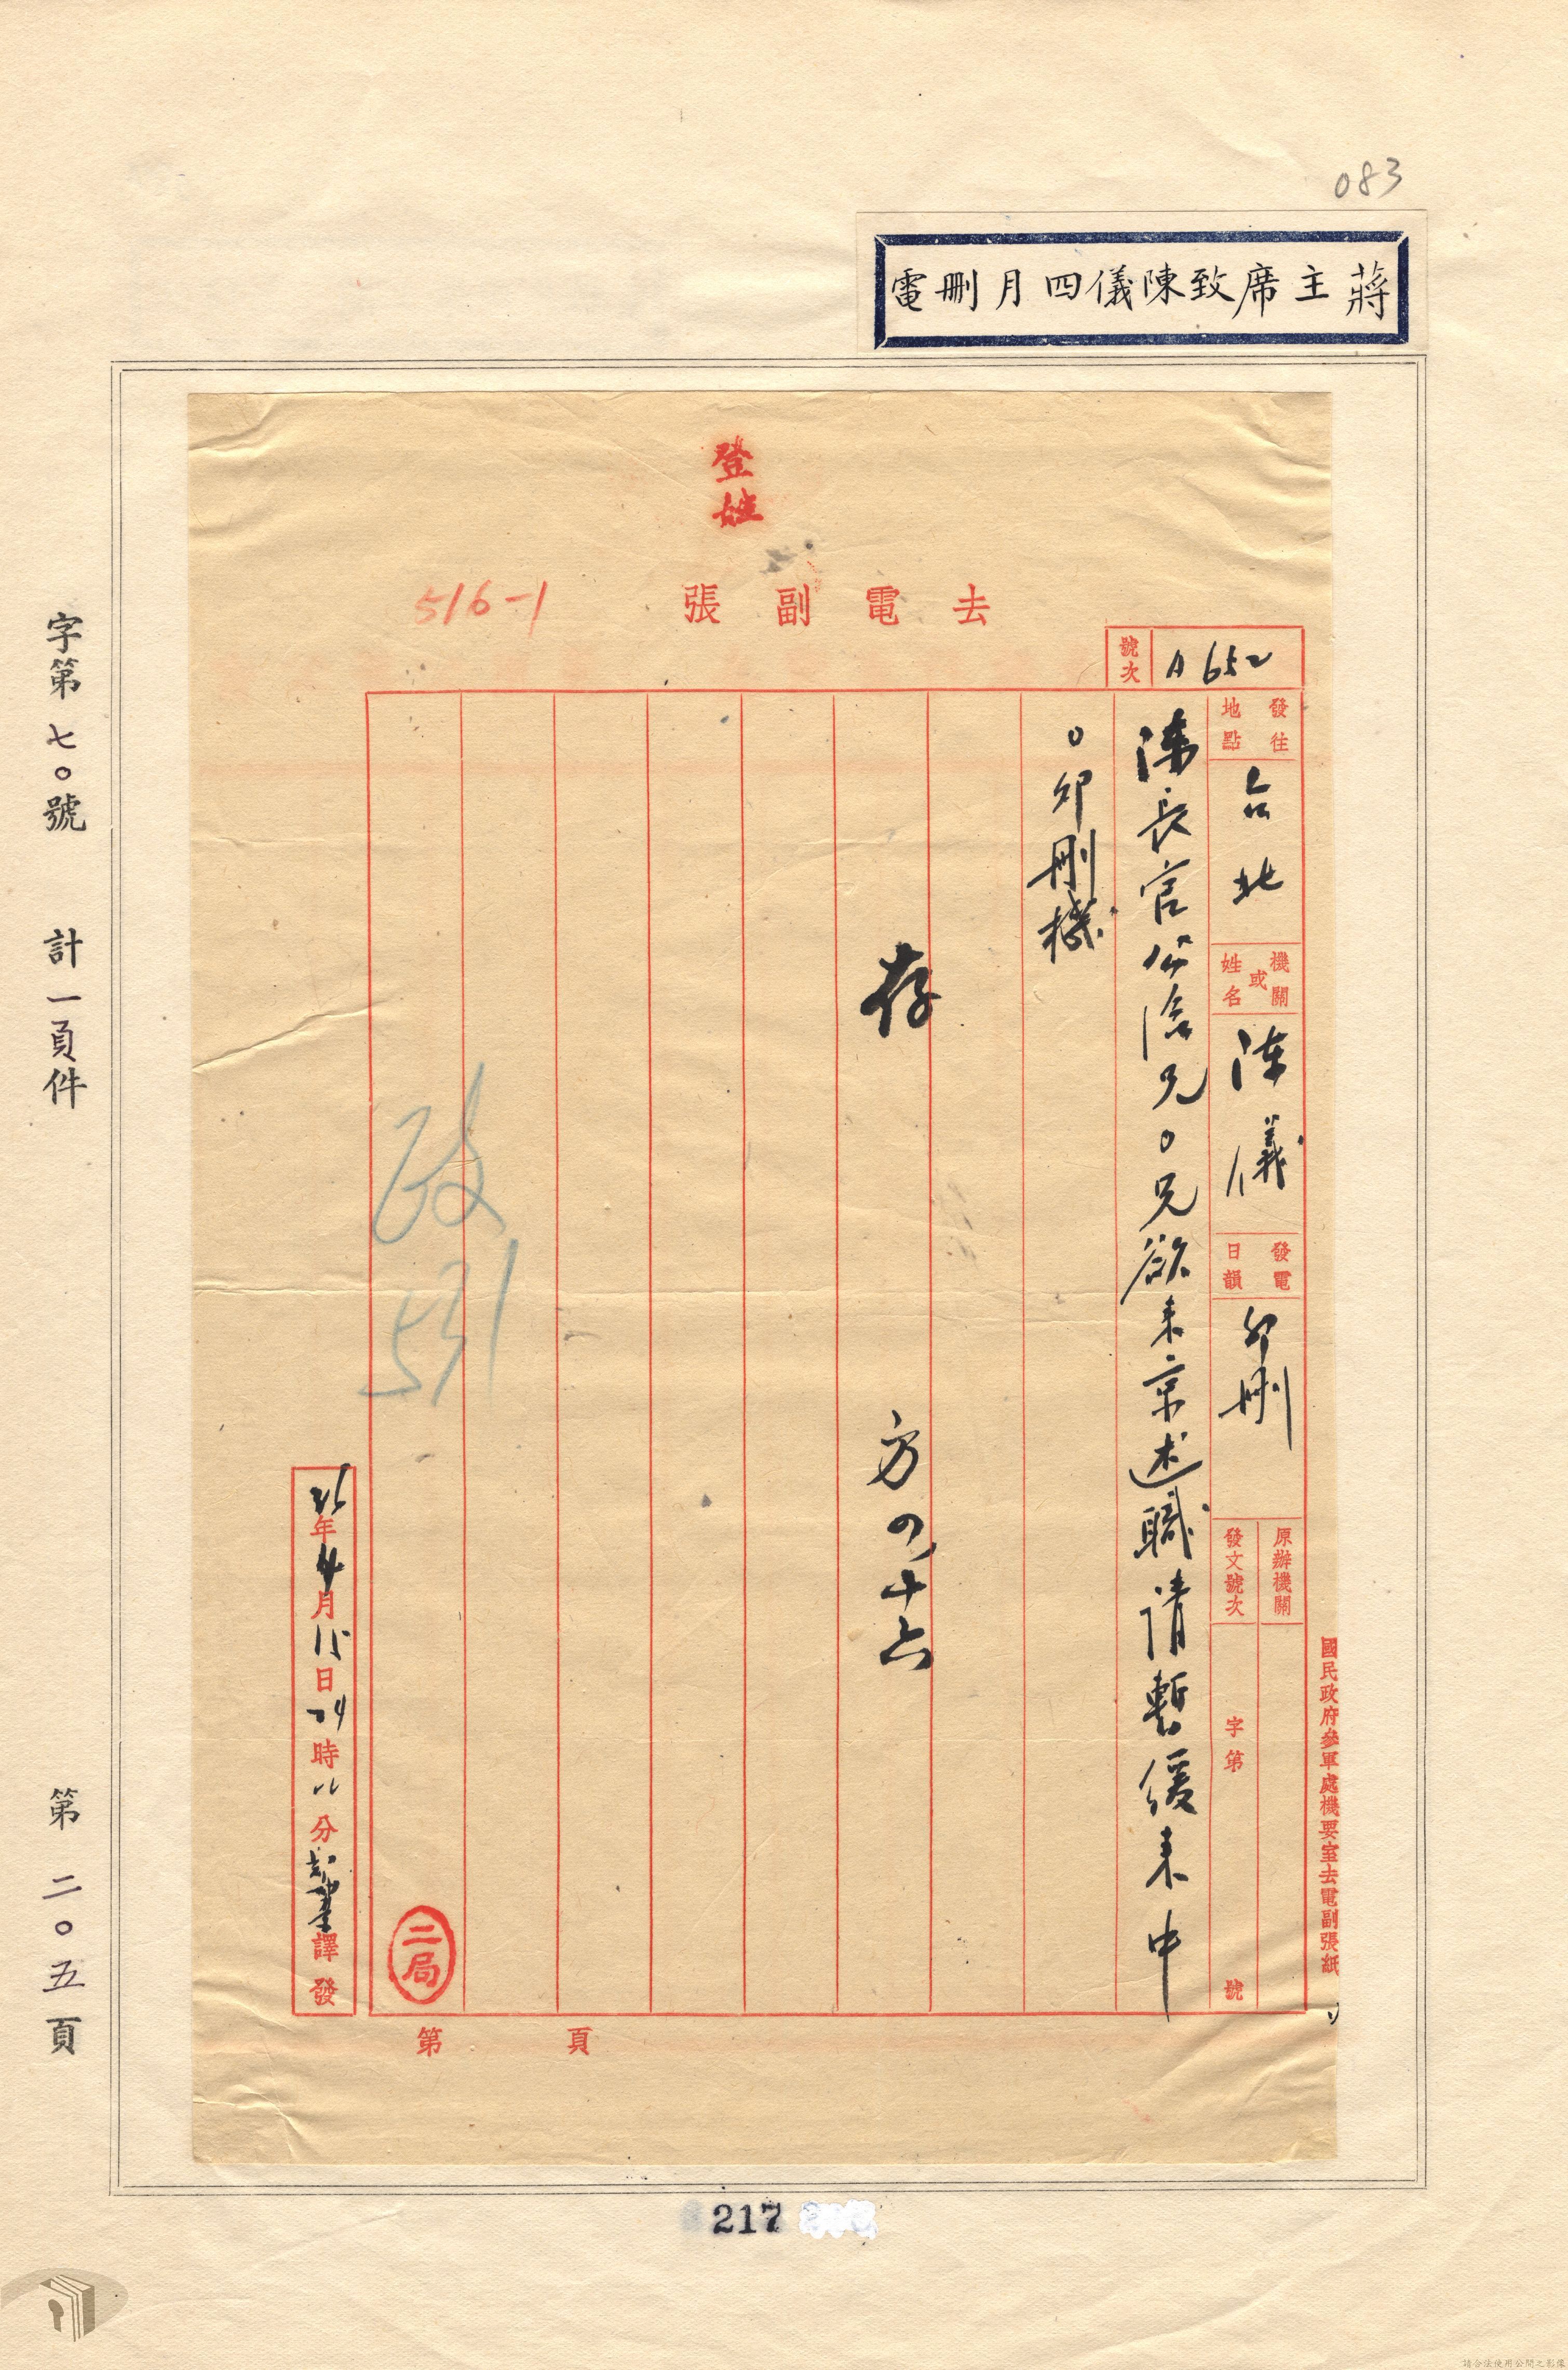 083
蔣主席致陳儀四月刪電
登
去電副張
516-1
號次 A652
發往地點 台北 機關或姓名 陳儀 發電日韻 卯刪
原辦機關
發文號次 字第 號
陳長官公洽兄○兄欲來京述職請暫緩來中
○卯刪機
存
方 四十六
政
531
35年4月15日 時 分 譯發
二局
第 頁
國民政府參軍處機要室去電副張紙
字第七○號 計一頁件 第二○五頁
217
請合法使用公開之影像